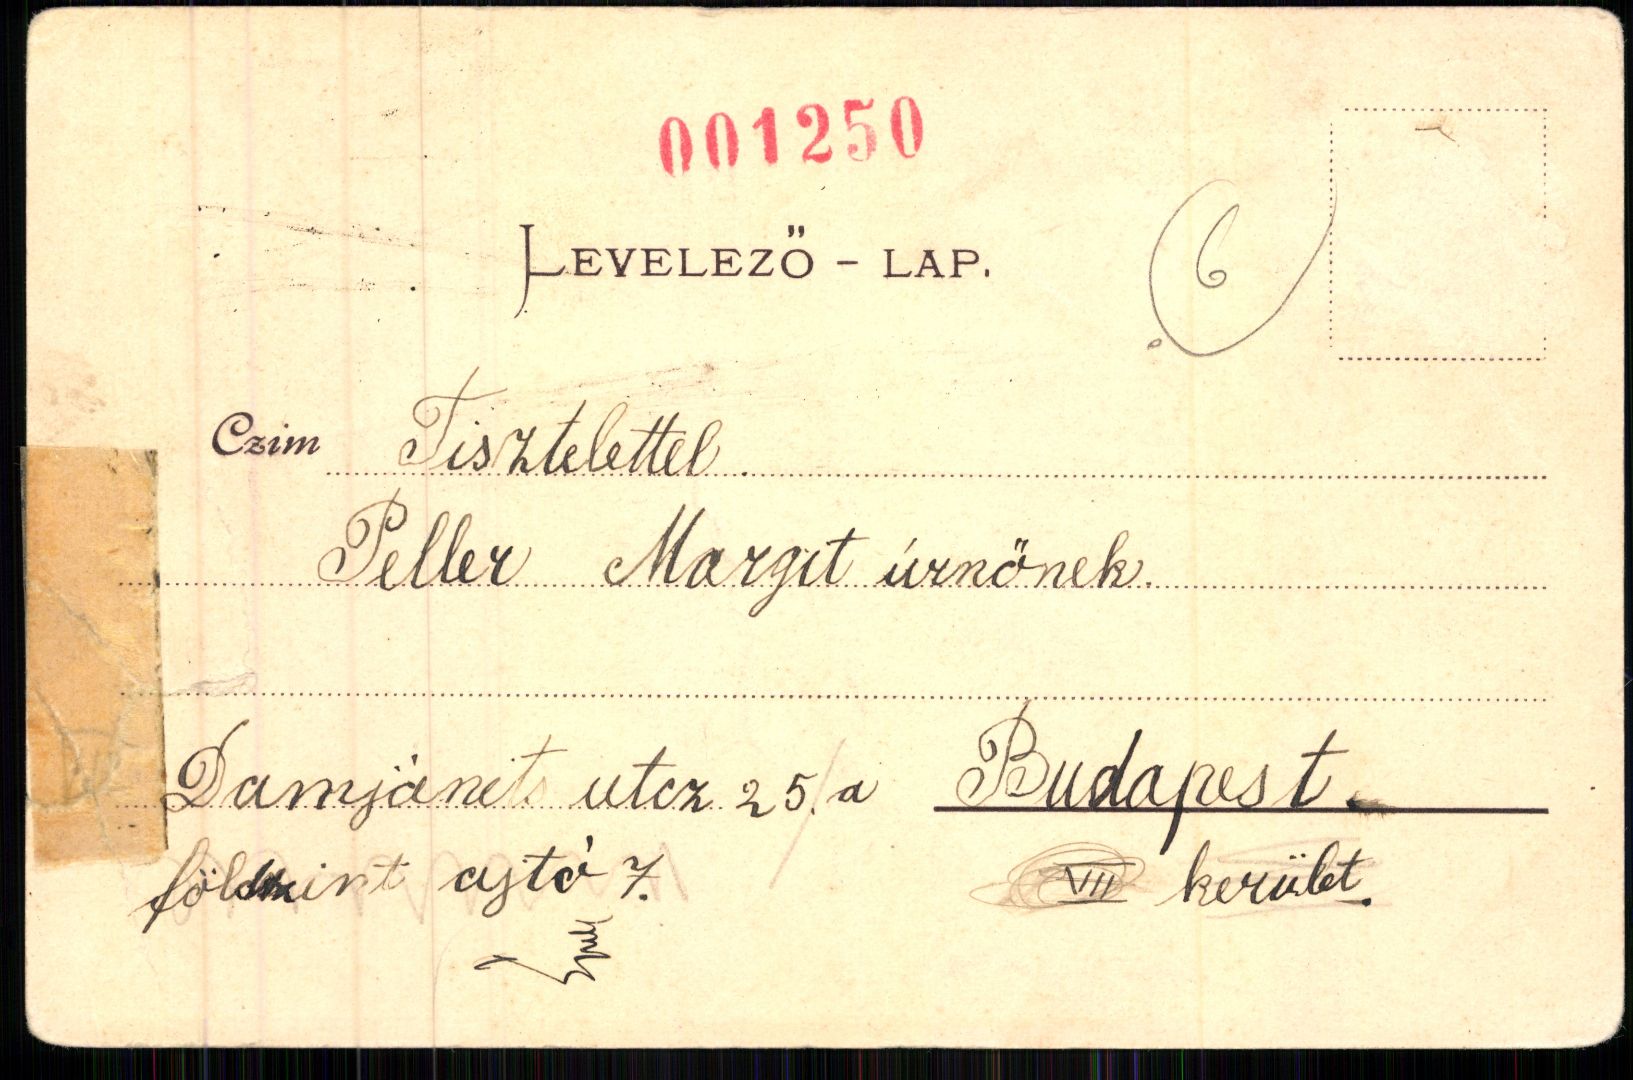 001250
LEVELEZŐ - LAP.
6
Czim Tisztelettel.
Peller Margit úrnőnek.
Damjánits utcz 25/a Budapest.
földszint ajtó 7. VII kerület.